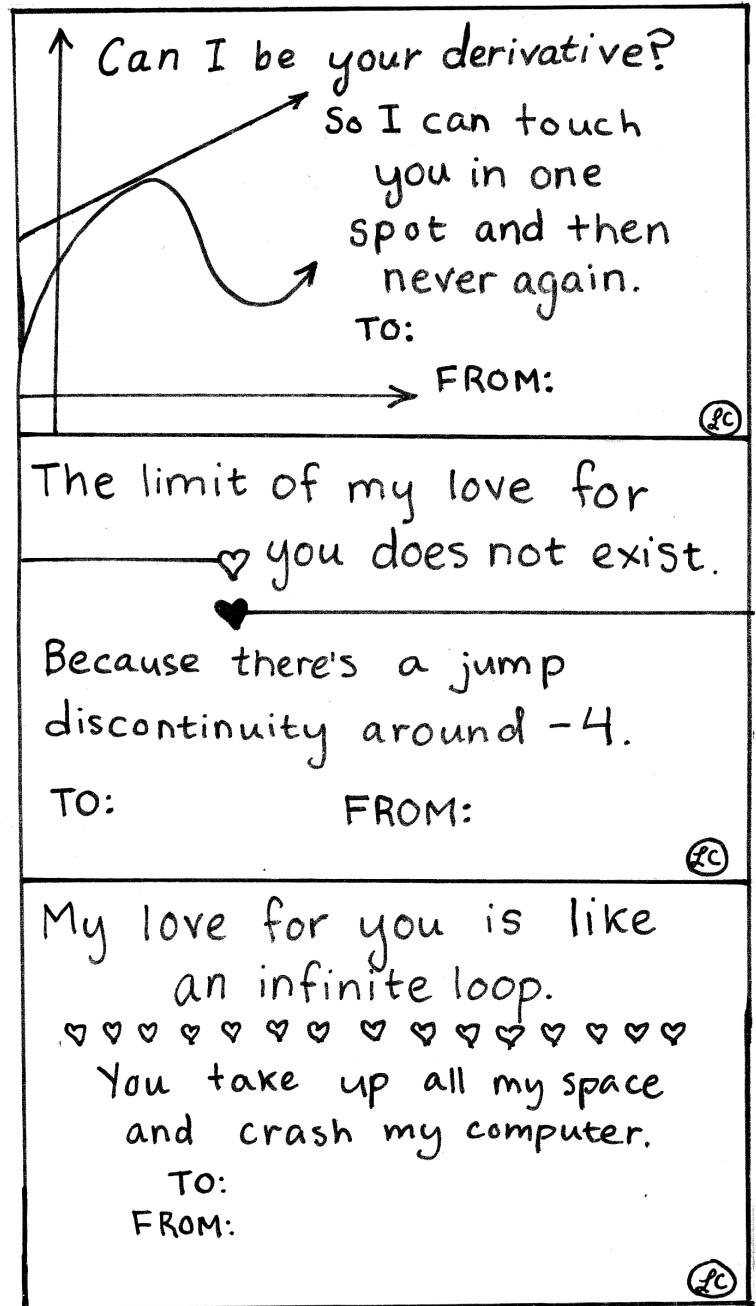 Can I be your derivative?
So I can touch
you in one
spot and then
never again.
TO:
FROM:
LC
The limit of my love for
you does not exist.
Because there's a jump
discontinuity around -4.
TO: FROM:
LC
My love for you is like
an infinite loop.
You take up all my space
and crash my computer.
TO:
FROM:
LC